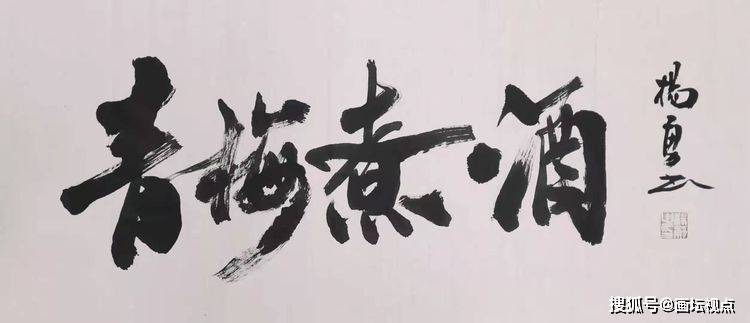 青梅煮酒
杨勇书
搜狐号@画坛视点